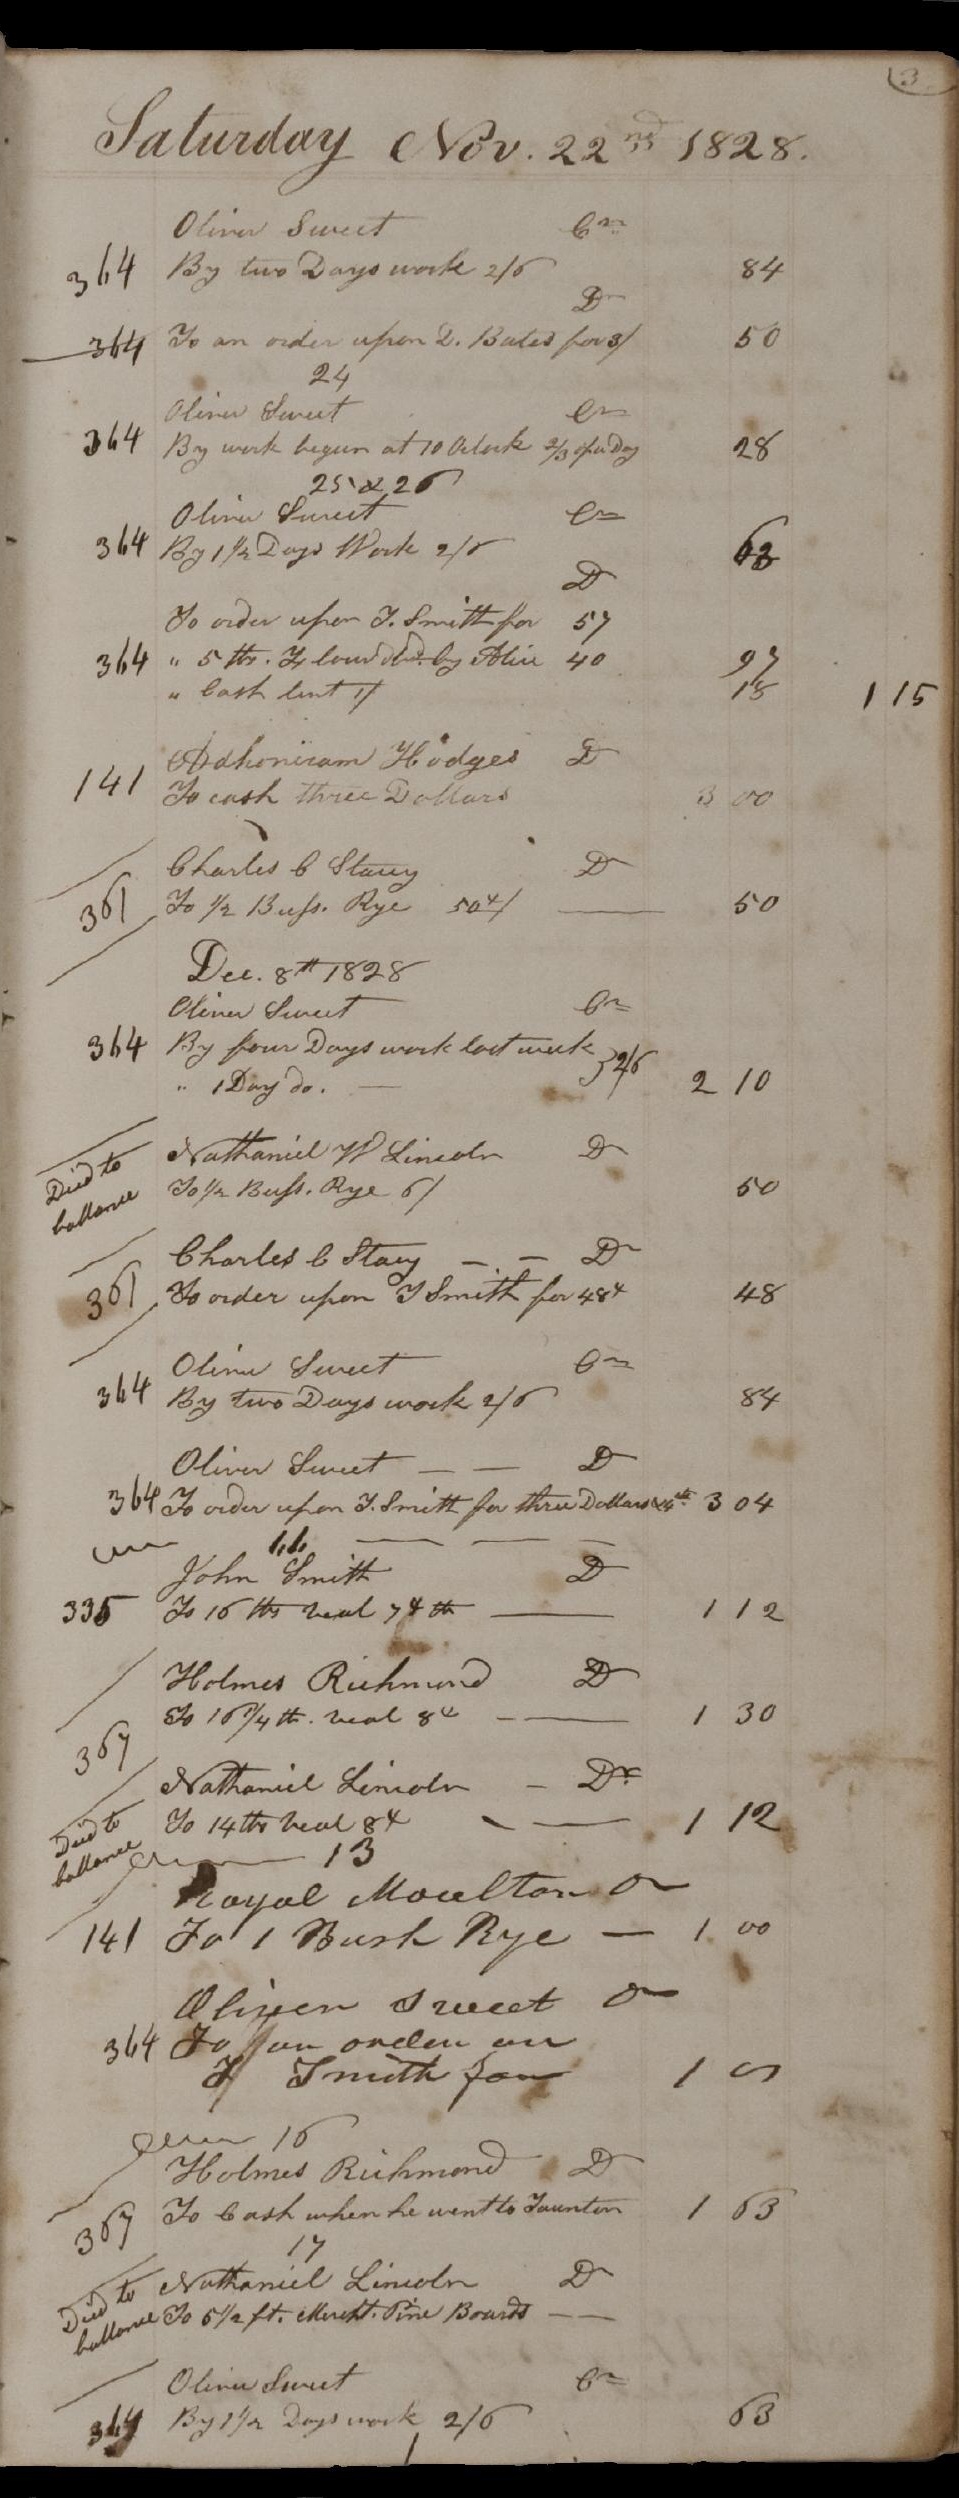 3
Saturday Nov. 22nd 1828.
Oliver Sweet Cr
364 By two Days work 2/6 84
Dr
364 To an order upon D. Bates for 3/ 50
24
Oliver Sweet Cr
364 By work begun at 10 Oclock 2/3 of a Day 28
25 & 26
Oliver Sweet Cr
364 By 1 1/2 Days Work 2/6 63
Dr
To order upon T. Smith for 57
364 " 5 lbs. by Olive 40 97
" Cash lent 1/ 18 1 15
Adhoniram Hodges Dr
141 To cash three Dollars 3 00
Charles C Stacy Dr
361 To 1/2 Bush. Rye 50 50
Dec. 8th 1828
Oliver Sweet Cr
364 By four Days work last week
" 1 Day do. } 2/6 2 10
Nathaniel W Lincoln Dr
Died to ballance
To 1/2 Bush. Rye 6/ 50
Charles C Stacy Dr
361 To order upon T Smith for 48 48
Oliver Sweet Cr
364 By two Days work 2/6 84
Oliver Sweet Dr
364 To order upon T. Smith for three Dollars 3 04
11
John Smith Dr
335 To 16 lbs veal 7 lb 1 12
Holmes Richmond Dr
367 To 16 1/4 lb. veal 8 1 30
Nathaniel Lincoln Dr
Died to ballance
To 14 lbs veal 8 1 12
13
Royal Moulton Dr
141 To 1 Bush Rye 1 00
Oliver Sweet Dr
364 To an order on
T Smith for 1 00
16
Holmes Richmond Dr
367 To Cash when he went to Taunton 1 63
17
Nathaniel Lincoln Dr
Died to ballance
To 6 1/2 ft. Mercht. Pine Boards
Oliver Sweet Cr
364 By 1 1/2 Days work 2/6 63